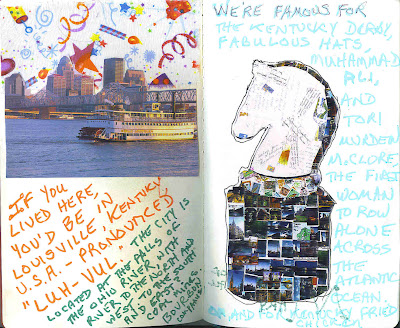 IF YOU
LIVED HERE,
YOU'D BE IN
LOUISVILLE, KENTUCKY
U.S.A. - PRONOUNCED
"LUH-VUL". THE CITY IS
LOCATED AT THE FALLS OF
THE OHIO RIVER WITH
RIVER TO THE NORTH AND
WEST. TO THE SOUTH
AND EAST
WE'RE FAMOUS FOR
THE KENTUCKY DERBY,
FABULOUS HATS,
MUHAMMAD
ALI,
AND
TORI
MURDEN
McCLORE,
THE FIRST
WOMAN
TO ROW
ALONE
ACROSS
THE
ATLANTIC
OCEAN.
AND FOR KENTUCKY FRIED
CHICKEN